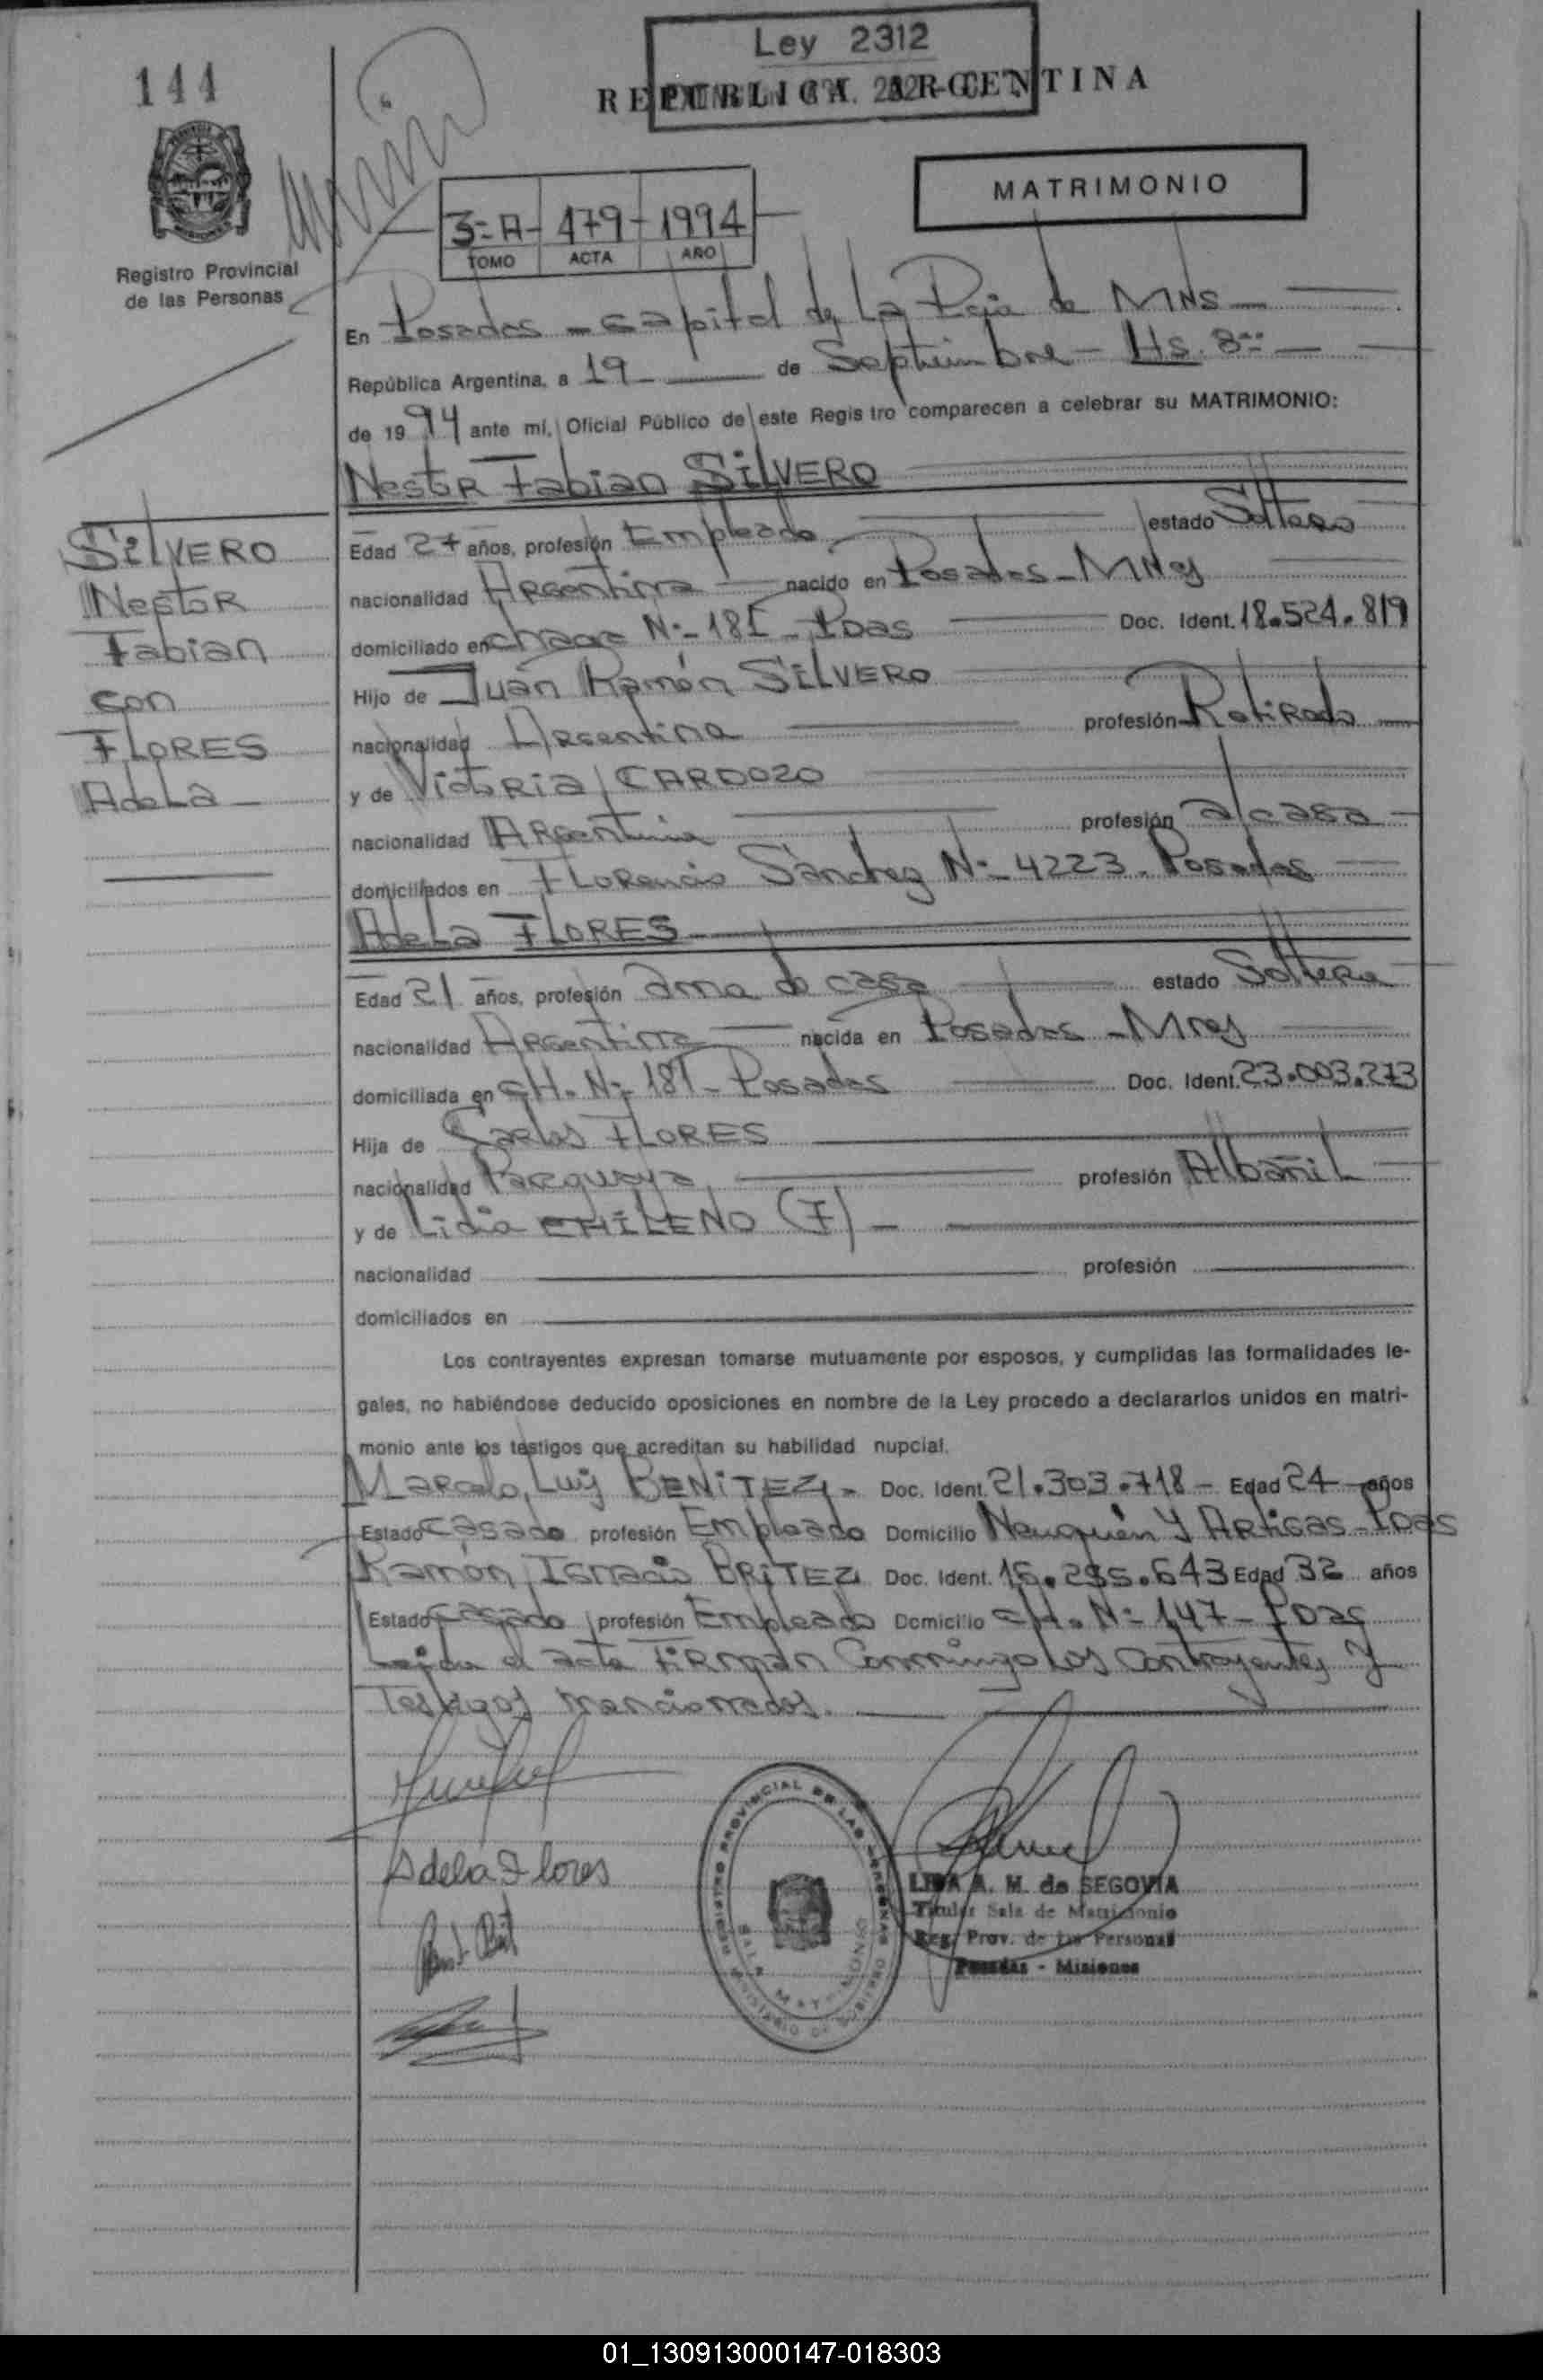 144
Ley 2312
REPUBLICA ARGENTINA
MATRIMONIO
3=A- 479- 1994
TOMO ACTA AÑO
Registro Provincial
de las Personas
En Posadas - Capital de La Pcia de MNS
República Argentina, a 19 de Septiembre - Hs. 8
de 1994 ante mí, Oficial Público de este Registro comparecen a celebrar su MATRIMONIO:
Nestor Fabian SILVERO
Edad 27 años, profesión Empleado estado Soltero
nacionalidad Argentina nacido en Posadas - Mnes
domiciliado en chacr N:- 181 - Pdas Doc. Ident. 18.524.819
Hijo de Juan Ramón SILVERO
nacionalidad Argentina profesión Retirado
y de Victoria CARDOZO
nacionalidad Argentina profesión a/casa
domiciliados en Florencio Sánchez N:- 4223. Posadas
Adela FLORES
Edad 21 años, profesión ama de casa estado Soltera
nacionalidad Argentina nacida en Posadas - Mnes
domiciliada en CH. N:- 181 - Posadas Doc. Ident. 23.003.273
Hija de Carlos FLORES
nacionalidad Paraguaya profesión Albañil
y de Lidia CHILENO (F)
nacionalidad profesión
domiciliados en
Los contrayentes expresan tomarse mutuamente por esposos, y cumplidas las formalidades le-
gales, no habiéndose deducido oposiciones en nombre de la Ley procedo a declararlos unidos en matri-
monio ante los testigos que acreditan su habilidad nupcial.
Marcelo Luis BENITEZ - Doc. Ident. 21.303.718 - Edad 24 años
Estado casado profesión Empleado Domicilio Neuquén y Artigas - Pdas
Ramón Ignacio BRITEZ Doc. Ident. 16.295.643 Edad 32 años
Estado casado profesión Empleado Domicilio CH. N:- 147 - Pdas
Leida el acta Firman Conmigo Los Contrayentes y
Testigos mencionados.
SILVERO
Nestor
Fabian
con
FLORES
Adela
Adela Flores
REGISTRO PROVINCIAL DE LAS PERSONAS
SALA MATRIMONIO
MINISTERIO DE GOBIERNO
LIDA A. M. de SEGOVIA
Titular Sala de Matrimonio
Reg. Prov. de las Personas
Posadas - Misiones
01_130913000147-018303